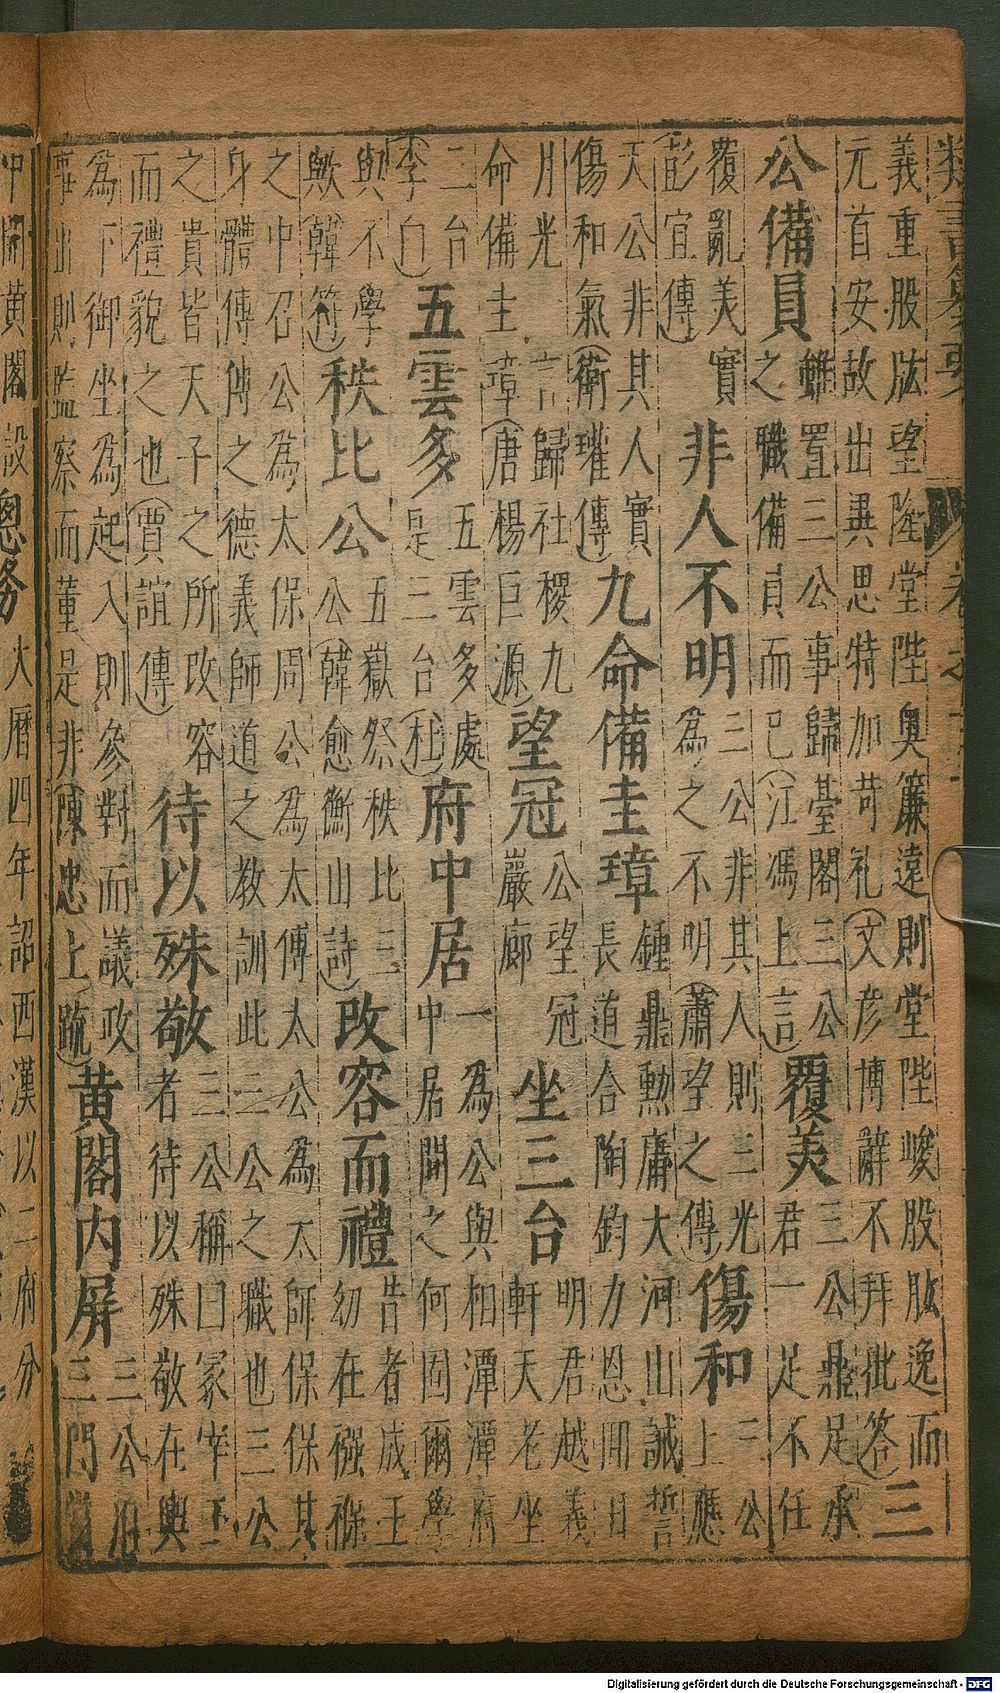 義重股肱望隆堂陛奥簾遠則堂陛峻股肱逸而
元首安故出異思特加苛礼(文彦博辭不拜批答)
三
公備員
雖置三公事歸臺閣三公
之職備員而已(江馮上言)
覆美
三公鼎足承
君一足不任
覆亂美實
彭宣傳)
非人不明
三公非其人則三光
為之不明(蕭望之傳)
傷和
三公
上應
天公非其人實
傷和氣(衛瓘傳)
九命備圭璋
鍾鼎勳庸大河山誠誓
長道合陶鈞力恩開日
月光言歸社稷九
命備圭章(唐楊巨源)
望冠
公望冠
巖廊
坐三台
明君越義
軒天老坐
二台
(李白)
五雲多
五雲多處
是三台(杜)
府中居
一為公與相潭潭府
中居問之何因爾學
與不學
歟(韓符)
秩比公
五嶽祭秩比三
公(韓愈衡山詩)
改容而禮
告者成王
幼在襁褓
之中召公為太保周公為太傅太公為太師保保其
身體傅傅之德義師道之教訓此三公之職也三公
之貴皆天子之所改容
而禮貌之也(賈誼傳)
待以殊敬
三公稱曰冢宰王
者待以殊敬在輿
為下御坐為起入則參對而議政
事出則監察而董是非(陳忠上疏)
黄閣内屏
三公
三門
中開黄閣
設
總務
大曆四年詔西漢以二府分
Digitalisierung gefördert durch die Deutsche Forschungsgemeinschaft - DFG